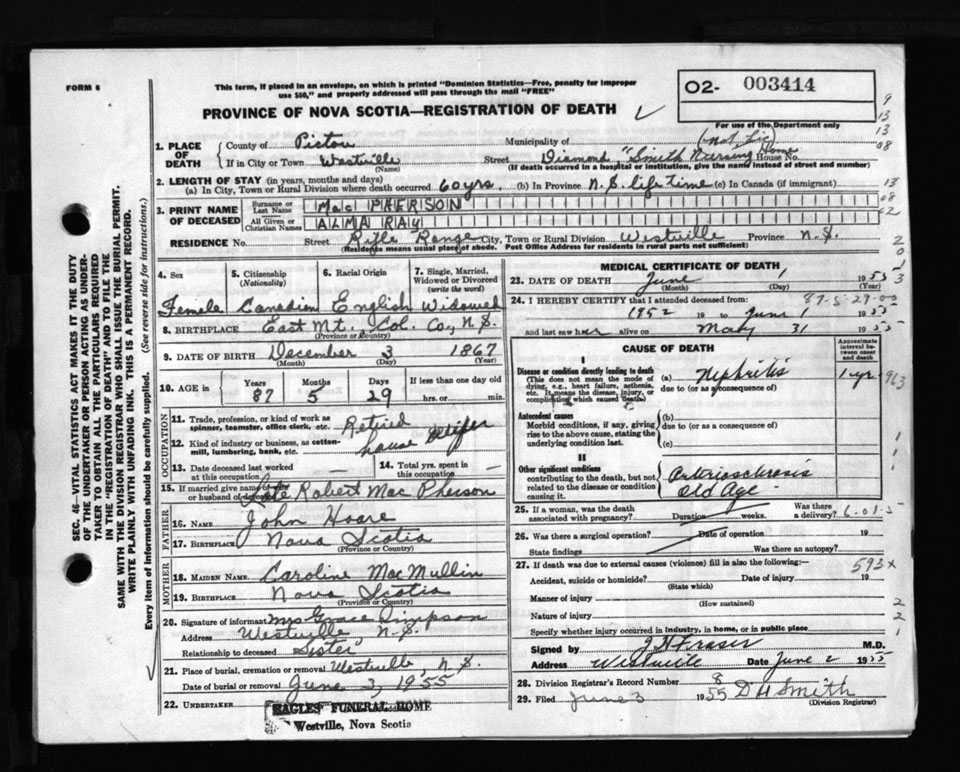 FORM 6
This form, if placed in an envelope, on which is printed "Dominion Statistics—Free, penalty for improper
use $50," and properly addressed will pass through the mail "FREE"
PROVINCE OF NOVA SCOTIA—REGISTRATION OF DEATH
O2- 003414
For use of the Department only
9
13
13
08
(not Lic)
1. PLACE OF DEATH
County of Pictou Municipality of
If in City or Town Westville Street Diamond "Smith Nursing Home House No.
(Name) (If death occurred in a hospital or institution, give the name instead of street and number)
2. LENGTH OF STAY (in years, months and days)
(a) In City, Town or Rural Division where death occurred 60 yrs. (b) In Province N.S. life time (c) In Canada (if immigrant)
13
08
02
3. PRINT NAME OF DECEASED
Surname or Last Name MacPHERSON
All Given or Christian Names ALMA RAY
RESIDENCE No. Street Rifle Range City, Town or Rural Division Westville Province N.S.
(Residence means usual place of abode. Post Office Address for residents in rural parts not sufficient)
4. Sex
5. Citizenship (Nationality)
6. Racial Origin
7. Single, Married, Widowed or Divorced (write the word)
Female Canadian English Widowed
8. BIRTHPLACE East Mt., Col. Co., N.S.
(Province or Country)
9. DATE OF BIRTH December 3 1867
(Month) (Day) (Year)
10. AGE in Years Months Days If less than one day old
87 5 29 hrs. or min.
OCCUPATION
11. Trade, profession, or kind of work as spinner, teamster, office clerk, etc. Retired
12. Kind of industry or business, as cotton-mill, lumbering, bank, etc. house
13. Date deceased last worked at this occupation —
14. Total yrs. spent in this occupation —
15. If married give name of wife or husband of deceased Late Robert MacPherson
FATHER
16. NAME John Hoare
17. BIRTHPLACE Nova Scotia
(Province or Country)
MOTHER
18. MAIDEN NAME. Caroline MacMullin
19. BIRTHPLACE Nova Scotia
(Province or Country)
20. Signature of informant Mrs Grace Simpson
Address Westville, N.S.
Relationship to deceased Sister
21. Place of burial, cremation or removal Westville N.S.
Date of burial or removal June 3, 1955
22. UNDERTAKER EAGLES FUNERAL HOME
Westville, Nova Scotia
MEDICAL CERTIFICATE OF DEATH
23. DATE OF DEATH June 1 1955
(Month) (Day)
87-5-29-00
24. I HEREBY CERTIFY that I attended deceased from:
1952 19 to June 1 1955
and last saw her alive on May 31 1955
CAUSE OF DEATH
Approximate interval between onset and death
I
Disease or condition directly leading to death
(This does not mean the mode of dying, e.g., heart failure, asthenia, etc. It means the disease, injury, or complication which caused death)
(a) Nephritis 1 yr.
due to (or as consequence of)
963
Antecedent causes
Morbid conditions, if any, giving rise to the above cause, stating the underlying condition last.
(b)
due to (or as a consequence of)
(c)
II
Other significant conditions
contributing to the death, but not related to the disease or condition causing it.
Arteriosclerosis
Old Age
25. If a woman, was the death associated with pregnancy? Duration weeks. Was there a delivery?
6-01-5
26. Was there a surgical operation? Date of operation 19
State findings Was there an autopsy?
27. If death was due to external causes (violence) fill in also the following:—
593x
Accident, suicide or homicide? Date of injury 19
(State which)
Manner of injury
(How sustained)
Nature of injury
Specify whether injury occurred in industry, in home, or in public place
Signed by J H Fraser M.D.
Address Westville Date June 2 1955
28. Division Registrar's Record Number 8
29. Filed June 3 1955 D H Smith
(Division Registrar)
SEC. 46—VITAL STATISTICS ACT MAKES IT THE DUTY
OF THE UNDERTAKER OR PERSON ACTING AS UNDER-
TAKER TO OBTAIN ALL THE PARTICULARS REQUIRED
IN THE "REGISTRATION OF DEATH" AND TO FILE THE
SAME WITH THE DIVISION REGISTRAR WHO SHALL ISSUE THE BURIAL PERMIT.
WRITE PLAINLY WITH UNFADING INK. THIS IS A PERMANENT RECORD.
Every item of information should be carefully supplied. (See reverse side for instructions.)